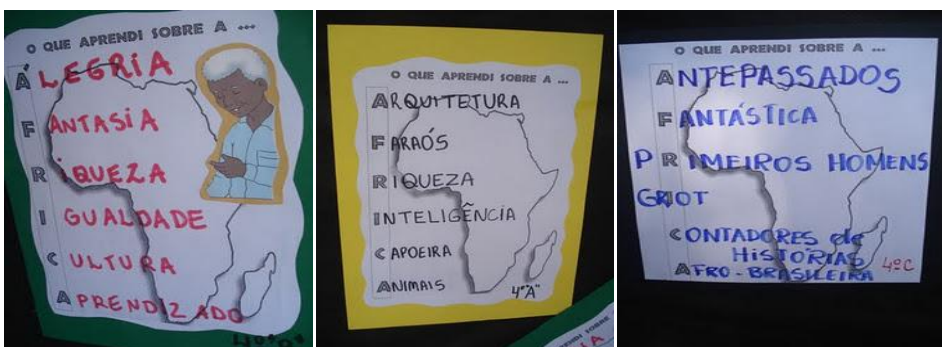 O QUE APRENDI SOBRE A ...
ÁLEGRIA
FANTASIA
RIQUEZA
IGUALDADE
CULTURA
APRENDIZADO
O QUE APRENDI SOBRE A ...
ARQUITETURA
FARAÓS
RIQUEZA
INTELIGÊNCIA
CAPOEIRA
ANIMAIS
4º "A"
O QUE APRENDI SOBRE A ...
ANTEPASSADOS
FANTÁSTICA
PRIMEIROS HOMENS
GRIOT
CONTADORES de
HISTÓRIAS
AFRO-BRASILEIRA
4º C